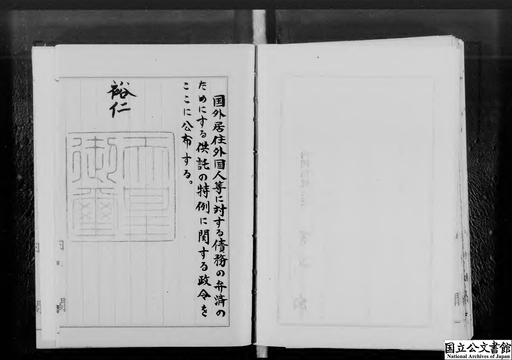 国外居住外国人等に対する債務の弁済の
ためにする供託の特例に関する政令を
ここに公布する。
裕仁
天皇
御璽
国立公文書館
National Archives of Japan